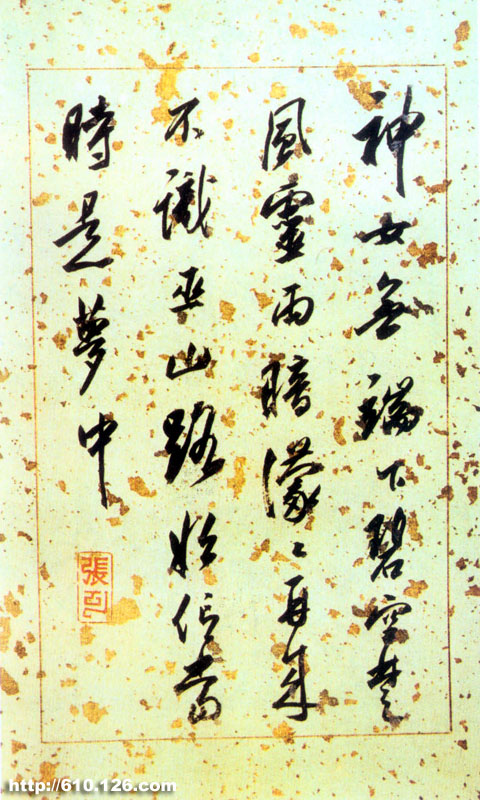 神女無端下碧空楚
風靈雨暗濛々再来
不識巫山路始信當
時是夢中
張
http://610.126.com/